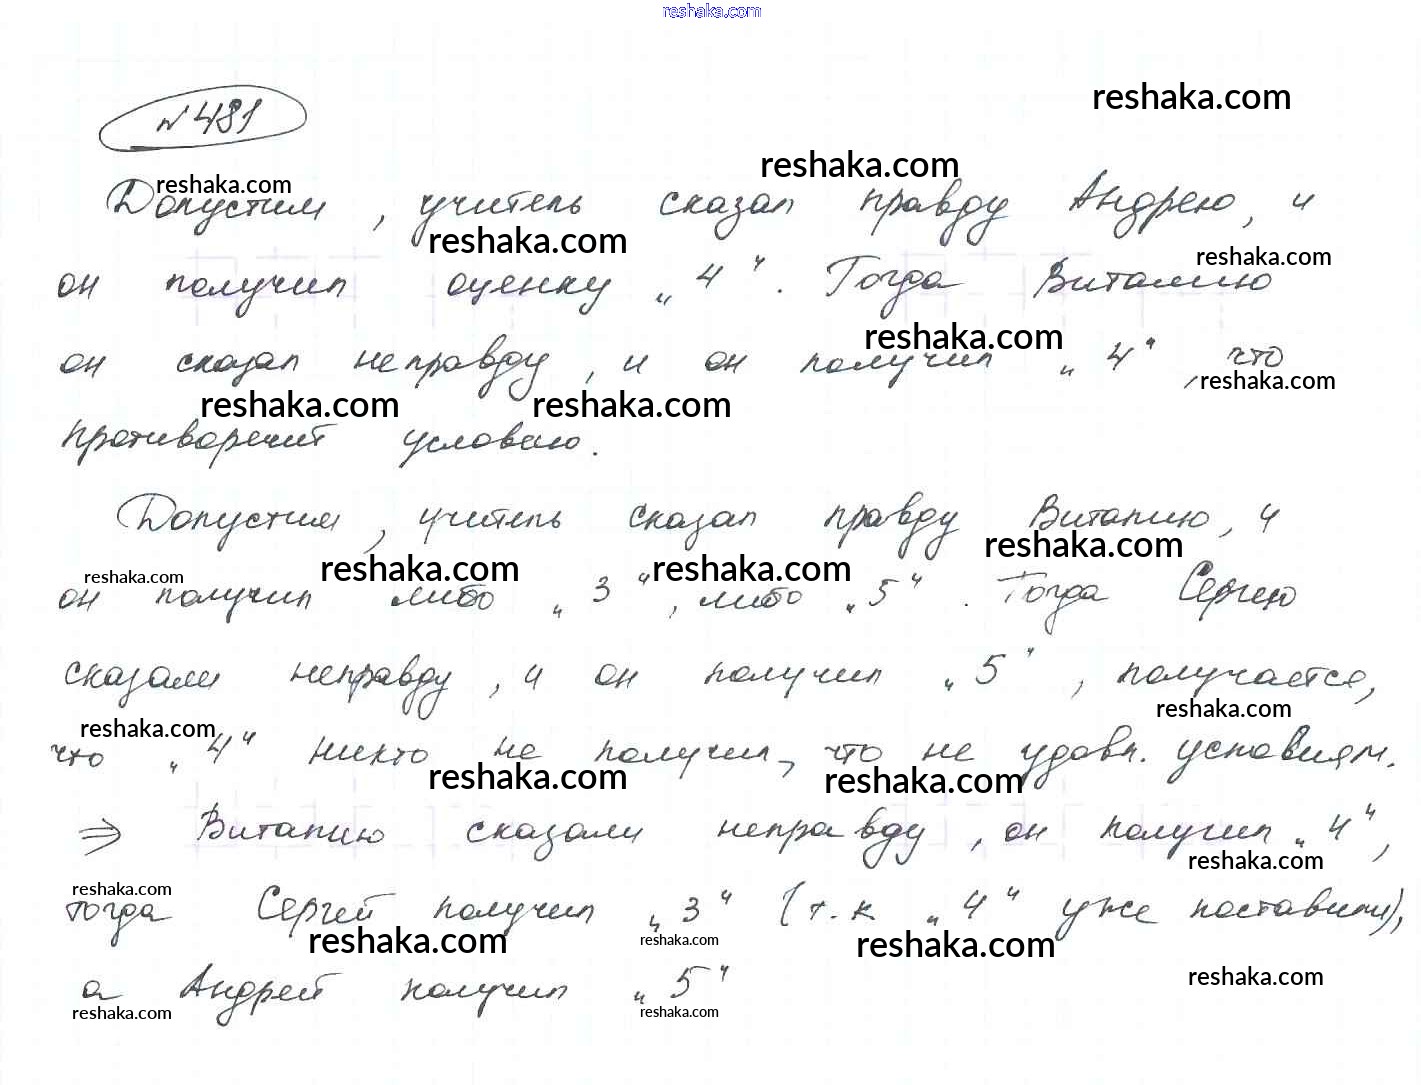 reshaka.com
№481
reshaka.com
reshaka.com
reshaka.com
Допустим, учитель сказал правду Андрею, и
reshaka.com
reshaka.com
он получил оценку „4“. Тогда Виталию
reshaka.com
он сказал неправду, и он получил „4“, что
reshaka.com reshaka.com reshaka.com
противоречит условию.
Допустим, учитель сказал правду Виталию, и
reshaka.com reshaka.com reshaka.com reshaka.com
он получил либо „3“, либо „5“. Тогда Сергею
сказали неправду, и он получил „5“, получается,
reshaka.com reshaka.com
что „4“ никто не получил, что не удовл. условиям.
reshaka.com reshaka.com
⇒ Виталию сказали неправду, он получил „4“,
reshaka.com reshaka.com
тогда Сергей получил „3“ (т.к „4“ уже поставили),
reshaka.com reshaka.com reshaka.com
reshaka.com
а Андрей получил „5“
reshaka.com reshaka.com